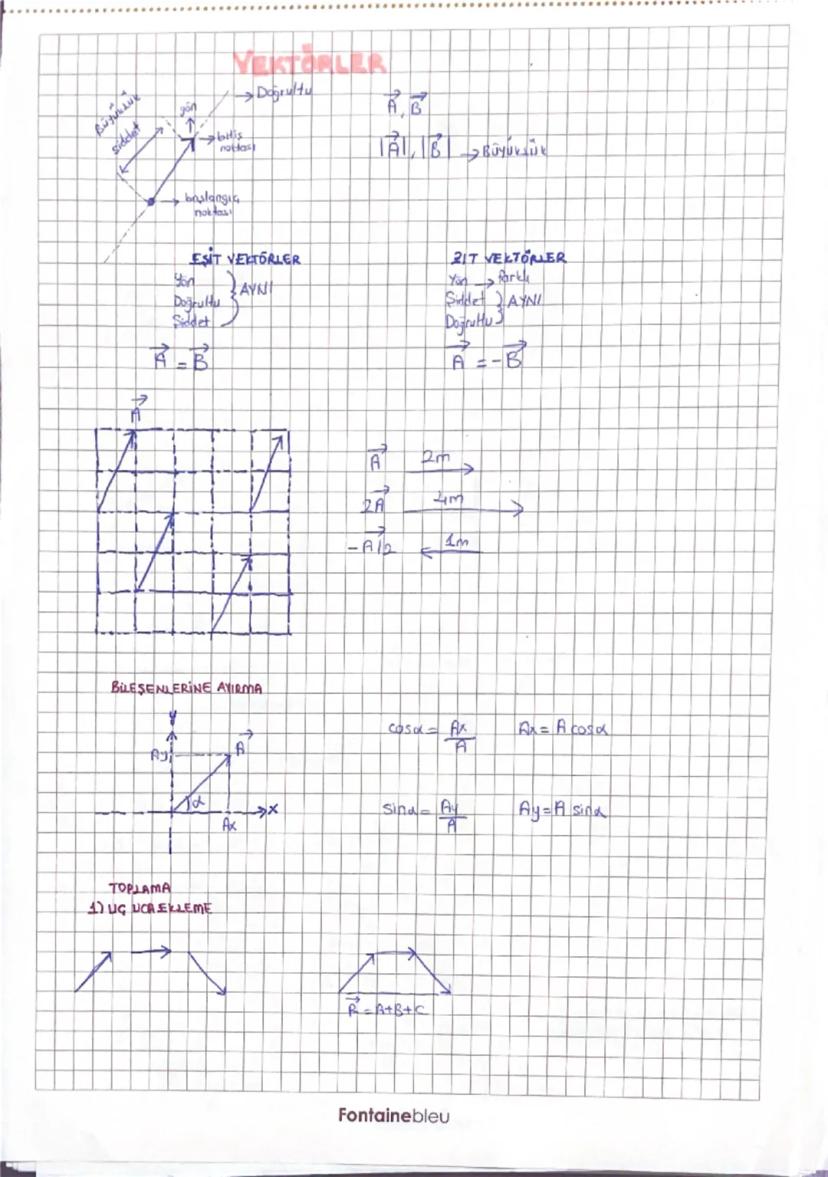 VEKTÖRLER
Büyüklük
şiddet
yön
→ Doğrultu
→ bitiş
noktası
→ başlangıç
noktası
A, B
|A|, |B| → BÜYÜKLÜK
EŞİT VEKTÖRLER
Yön
Doğrultu
Şiddet
AYNI
A = B
ZIT VEKTÖRLER
Yön → farklı
Şiddet
Doğrultu
AYNI
A = -B
A
A 2m
2A 4m
-A/2 1m
BİLEŞENLERİNE AYIRMA
y
Ay
A
α
x
Ax
cosα = Ax/A Ax = A cosα
sinα = Ay/A Ay = A sinα
TOPLAMA
1) UÇ UCA EKLEME
R = A+B+C
Fontainebleu